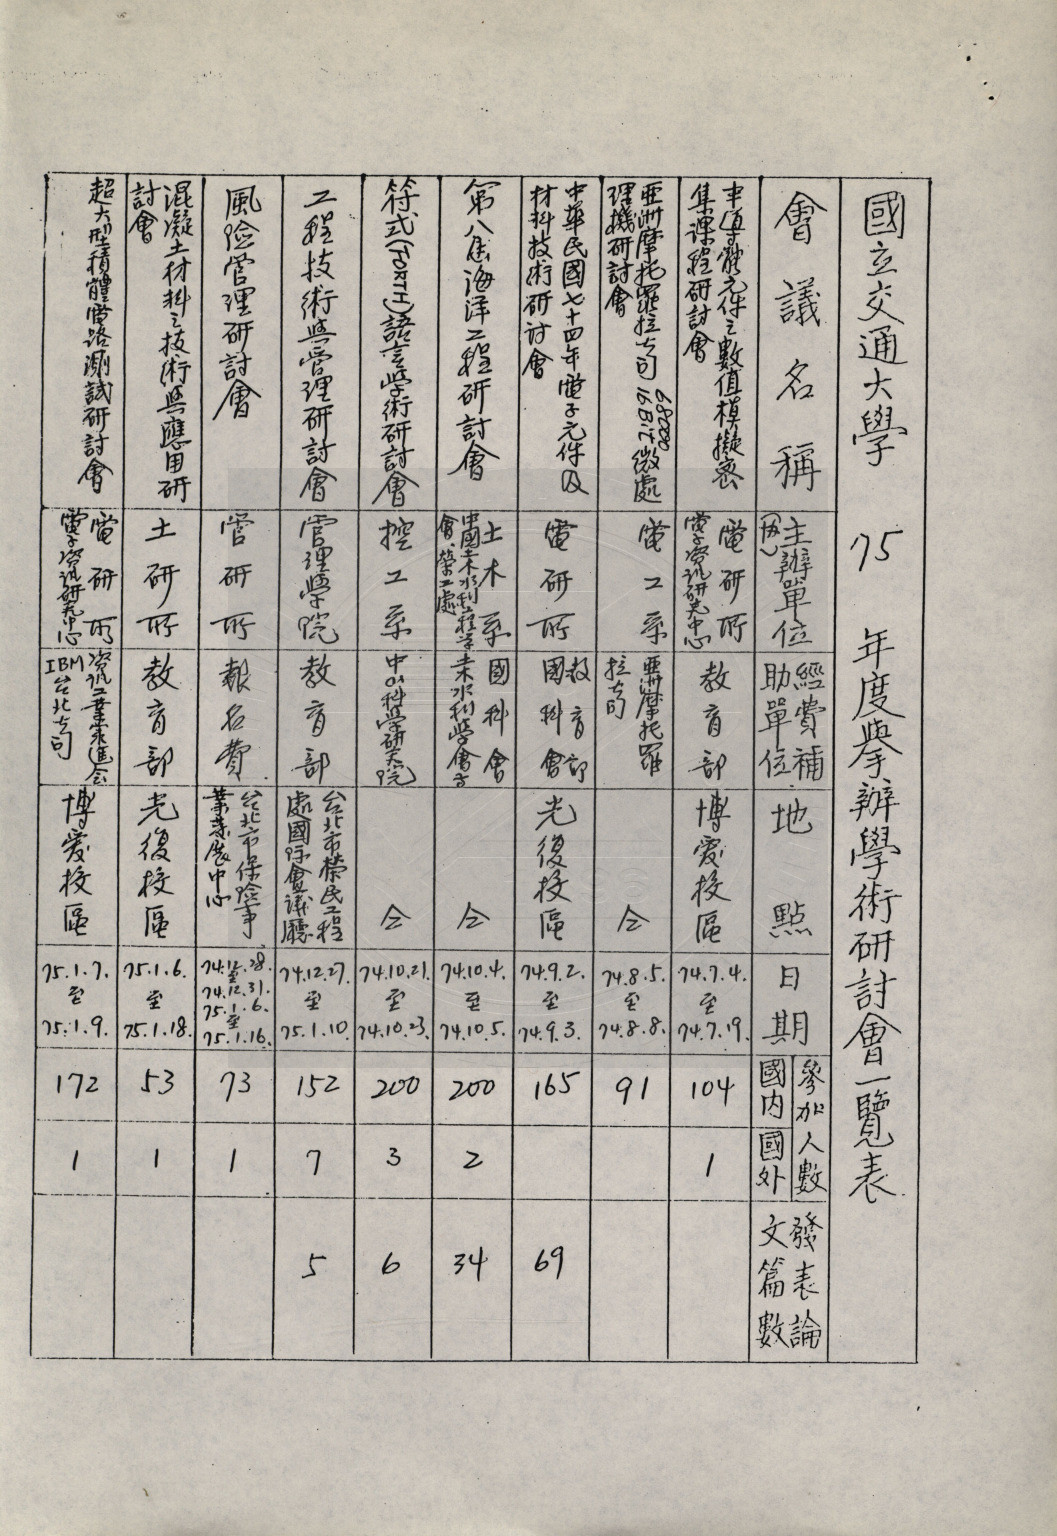 國立交通大學 75 年度舉辦學術研討會一覽表
會議名稱
主辦單位
經費補
助單位
地點
日期
參加人數
國內
國外
發表論
文篇數
半導體元件之數值模擬密
集課程研討會
電研所
電子資訊研究中心
教育部
博愛校區
74.7.4.
至
74.7.19.
104
1
亞洲摩托羅拉公司 68000 16Bit 微處
理機研討會
電工系
亞洲摩托羅
拉公司
仝
74.8.5.
至
74.8.8.
91
中華民國七十四年電子元件及
材料技術研討會
電研所
教育部
國科會
光復校區
74.9.2.
至
74.9.3.
165
69
第八屆海洋工程研討會
土木系
中國土木水利工程學
會、榮工處
國科會
土木水利學會等
仝
74.10.4.
至
74.10.5.
200
2
34
符式(FORTH)語言學術研討會
控工系
中山科學研究院
仝
74.10.21.
至
74.10.23.
200
3
6
工程技術與管理研討會
管理學院
教育部
台北市榮民工程
處國際會議廳
74.12.27.
至
75.1.10.
152
7
5
風險管理研討會
管研所
報名費
台北市保險事
業發展中心
74.12.28.
至
74.12.31.
75.1.6.
至
75.1.16.
73
1
混凝土材料之技術與應用研
討會
土研所
教育部
光復校區
75.1.6.
至
75.1.18.
53
1
超大型積體電路測試研討會
電研所
電子資訊研究中心
資訊工業策進會
IBM台北公司
博愛校區
75.1.7.
至
75.1.9.
172
1